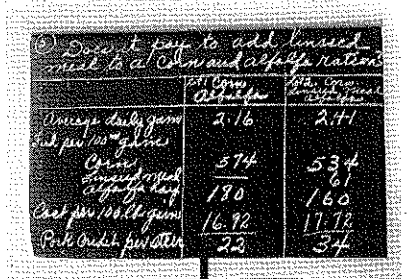 Does it pay to add linseed
meal to a Corn and alfalfa ration?
Lot 1 Corn Alfalfa
Lot 2 Corn Linseed Meal Alfalfa
Average daily gain 2.16 2.41
Feed per 100# gain
Corn 574 534
Linseed meal 61
Alfalfa Hay 180 160
Cost per 100 lb gain 16.92 17.72
Pork Credit per steer 22 34